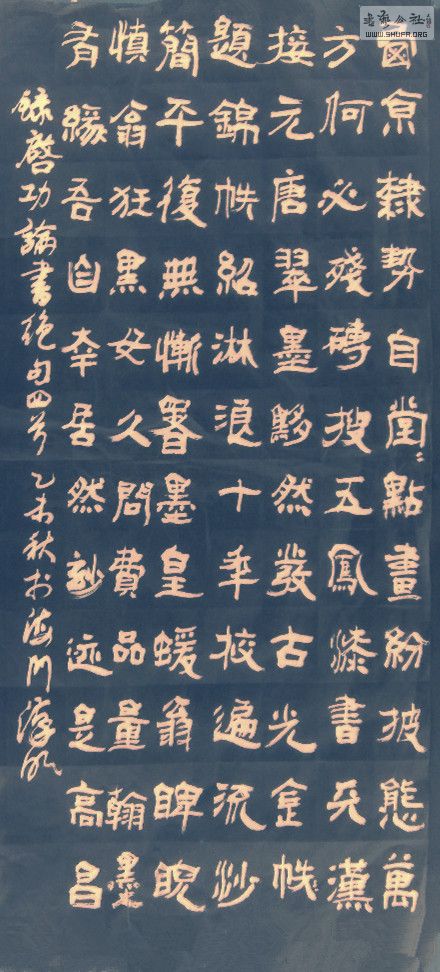 西京隸勢自堂〻點畫紛披態萬
方何必殘磚搜五鳳漆書天漢
接元唐翠墨黟然發古光金帙
題錦帙紹淋浪十年校遍流沙
簡平復無慚署墨皇蝯翁睥睨
慎翁狂黑女久問費品量翰墨
有緣吾自幸居然妙迹是高昌
錄啓功論書絕句四首 乙未秋於海門
書藝公社
WWW.SHUFA.ORG